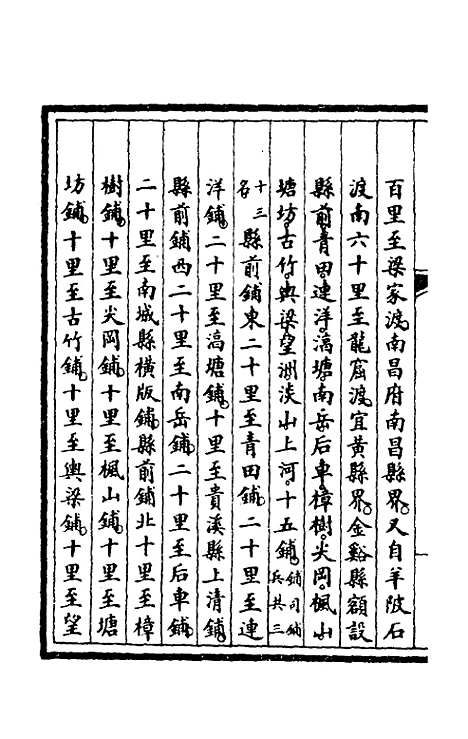 百里至梁家渡南昌府南昌縣界又自羊陂石
渡南六十里至龍窟渡宜黄縣界金谿縣額設
縣前青田連洋滈塘南岳后車樟樹尖岡楓山
塘坊古竹輿梁望洲淡山上河十五鋪鋪司鋪兵共三
十三名縣前鋪東二十里至青田鋪二十里至連
洋鋪二十里至滈塘鋪十里至貴溪縣上清鋪
縣前鋪西二十里至南岳鋪二十里至后車鋪
二十里至南城縣橫版鋪縣前鋪北十里至樟
樹鋪十里至尖岡鋪十里至楓山鋪十里至塘
坊鋪十里至古竹鋪十里至輿梁鋪十里至望